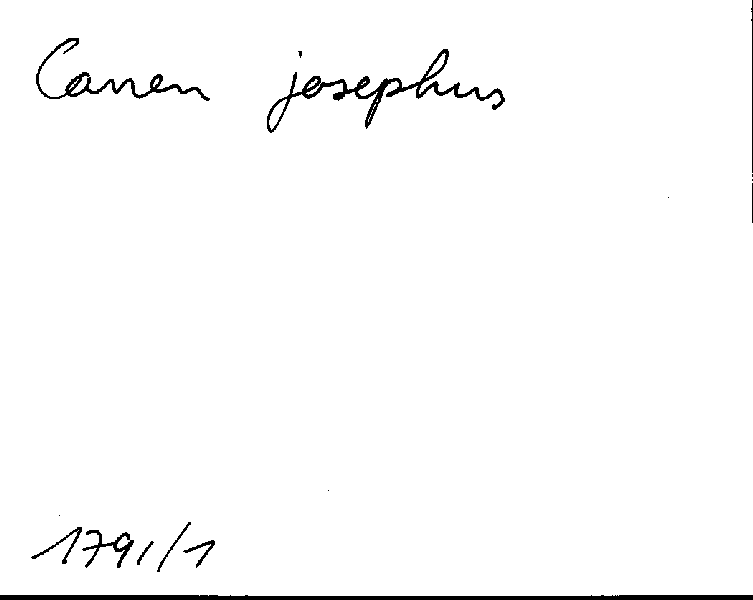 Carren josephus
1791/1